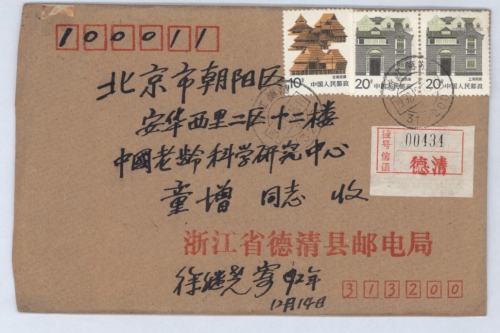 100011
10分 中国人民邮政
20分 中国人民邮政
20分 中国人民邮政
北京市朝阳区
安华西里二区十二楼
中國老龄科学研究中心
童增 同志 收
挂号信函
00434
德清
浙江省德清县邮电局
徐继光寄 92年
12月14日
313200